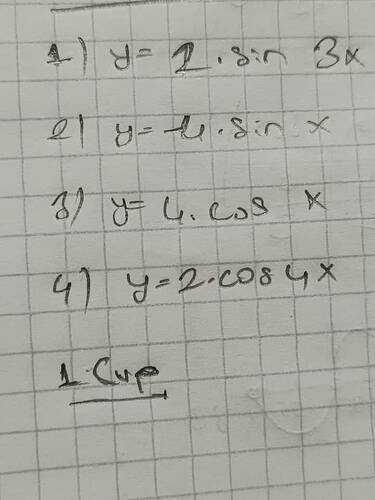 1) y= 2.sin 3x
2) y=-4.sin x
3) y= 4.cos x
4) y=2.cos 4x
1.Cup